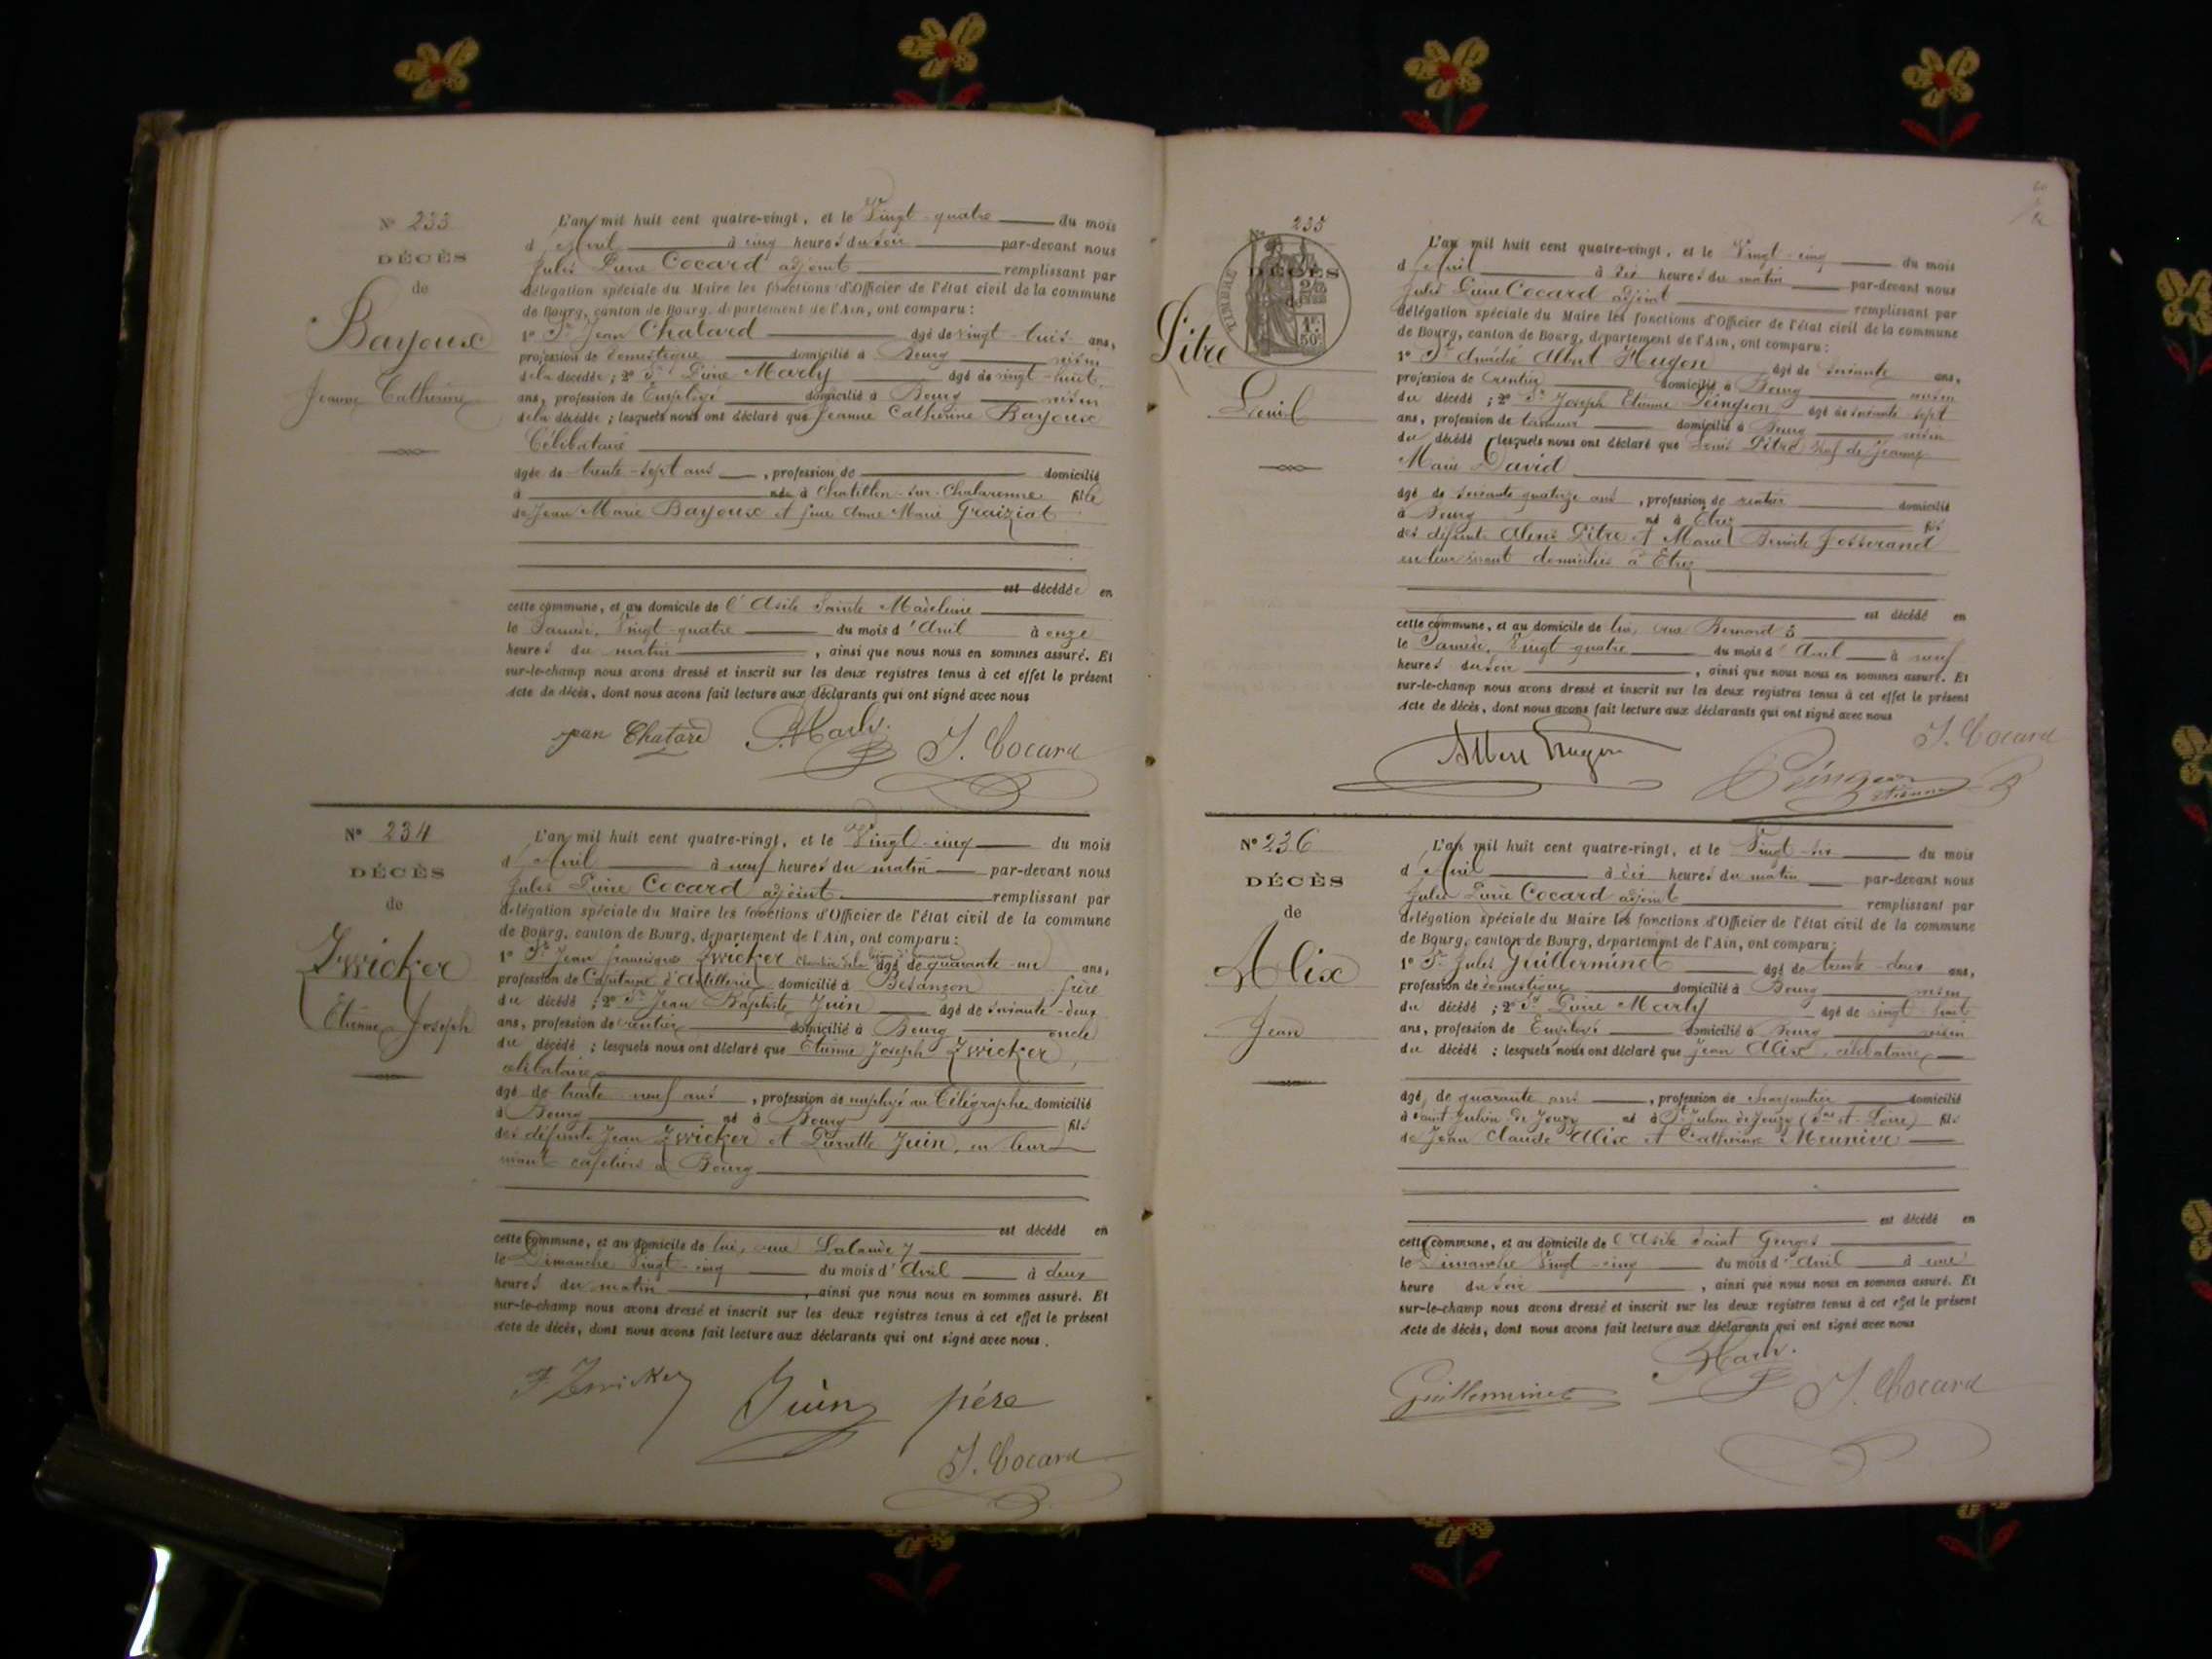 N° 233
DÉCÈS
de
Bayoux
Jeanne Catherine
L'an mil huit cent quatre-vingt, et le Vingt-quatre du mois
d'Avril à cinq heures du soir par-devant nous
Jules Pierre Cocard adjoint remplissant par
délégation spéciale du Maire les fonctions d'Officier de l'état civil de la commune
de Bourg, canton de Bourg, département de l'Ain, ont comparu :
1° Sr Jean Chatard âgé de vingt-trois ans,
profession de Domestique domicilié à Bourg voisin
de la décédée ; 2° Sr Pierre Marly âgé de vingt-huit
ans, profession de Employé domicilié à Bourg voisin
de la décédée ; lesquels nous ont déclaré que Jeanne Catherine Bayoux
Célibataire
âgée de trente-sept ans, profession de domicilié
à née à Chatillon-sur-Chalaronne fille
de Jean Marie Bayoux et feue Anne Marie Graiziat
est décédée en
cette commune, et au domicile de l'Asile Sainte Madeleine
le Samedi, Vingt-quatre du mois d'Avril à onze
heures du matin, ainsi que nous nous en sommes assuré. Et
sur-le-champ nous avons dressé et inscrit sur les deux registres tenus à cet effet le présent
Acte de décès, dont nous avons fait lecture aux déclarants qui ont signé avec nous
jean Chatard P. Marly. J. Cocard
N° 234
DÉCÈS
de
Zwicker
Étienne Joseph
L'an mil huit cent quatre-vingt, et le Vingt-cinq du mois
d'Avril à neuf heures du matin par-devant nous
Jules Pierre Cocard adjoint remplissant par
délégation spéciale du Maire les fonctions d'Officier de l'état civil de la commune
de Bourg, canton de Bourg, département de l'Ain, ont comparu :
1° Sr Jean francisque Zwicker âgé de quarante-un ans,
profession de Capitaine d'Artillerie domicilié à Besançon frère
du décédé ; 2° Sr Jean Baptiste Juin âgé de soixante-deux
ans, profession de rentier domicilié à Bourg oncle
du décédé ; lesquels nous ont déclaré que Etienne Joseph Zwicker,
célibataire
âgé de trente-neuf ans, profession de employé au Télégraphe domicilié
à Bourg né à Bourg fils
des défunts Jean Zwicker et Pierrette Juin, en leur
vivant cafetiers à Bourg
est décédé en
cette commune, et au domicile de lui, rue Lalande 7
le Dimanche Vingt-cinq du mois d'Avril à deux
heures du matin, ainsi que nous nous en sommes assuré. Et
sur-le-champ nous avons dressé et inscrit sur les deux registres tenus à cet effet le présent
Acte de décès, dont nous avons fait lecture aux déclarants qui ont signé avec nous.
F. Zwicker Juin père
J. Cocard
N° 235
DÉCÈS
de
TIMBRE
1F. 50c.
Pitre
Louis
L'an mil huit cent quatre-vingt, et le Vingt-cinq du mois
d'Avril à dix heures du matin par-devant nous
Jules Pierre Cocard adjoint remplissant par
délégation spéciale du Maire les fonctions d'Officier de l'état civil de la commune
de Bourg, canton de Bourg, département de l'Ain, ont comparu :
1° Sr Amédé Albert Hugon âgé de soixante ans,
profession de rentier domicilié à Bourg voisin
du décédé ; 2° Sr Joseph Etienne Pingeon âgé de soixante-sept
ans, profession de tanneur domicilié à Bourg voisin
du décédé lesquels nous ont déclaré que Louis Pitre veuf de Jeanne
Marie David
âgé de soixante-quatorze ans, profession de rentier domicilié
à Bourg né à Etrez fils
des défunts Alexis Pitre et Marie Josserand
en leur vivant domiciliés à Etrez
est décédé en
cette commune, et au domicile de lui, rue Bernard 5
le Samedi, Vingt-quatre du mois d'Avril à neuf
heures du soir, ainsi que nous nous en sommes assuré. Et
sur-le-champ nous avons dressé et inscrit sur les deux registres tenus à cet effet le présent
Acte de décès, dont nous avons fait lecture aux déclarants qui ont signé avec nous
J. Cocard
Albert Hugon Pingeon Etienne
N° 236
DÉCÈS
de
Alix
Jean
L'an mil huit cent quatre-vingt, et le Vingt-six du mois
d'Avril à dix heures du matin par-devant nous
Jules Pierre Cocard adjoint remplissant par
délégation spéciale du Maire les fonctions d'Officier de l'état civil de la commune
de Bourg, canton de Bourg, département de l'Ain, ont comparu :
1° Sr Jules Guillerminet âgé de trente-deux ans,
profession de domestique domicilié à Bourg voisin
du décédé ; 2° Sr Pierre Marly âgé de vingt-huit
ans, profession de Employé domicilié à Bourg voisin
du décédé ; lesquels nous ont déclaré que Jean Alix, célibataire
âgé de quarante ans, profession de charpentier domicilié
à Saint Julien de Jonzy né à St Julien de Jonzy (Sne et Loire) fils
de Jean Claude Alix et Catherine Meunier
est décédé en
cette commune, et au domicile de l'Asile Saint Georges
le Dimanche Vingt-cinq du mois d'Avril à une
heure du soir, ainsi que nous nous en sommes assuré. Et
sur-le-champ nous avons dressé et inscrit sur les deux registres tenus à cet effet le présent
Acte de décès, dont nous avons fait lecture aux déclarants qui ont signé avec nous
Guillerminet P. Marly. J. Cocard